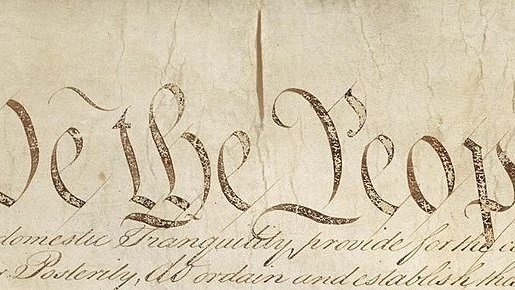 We the Peop
domestic Tranquility, provide for the c
Posterity, do ordain and establish th